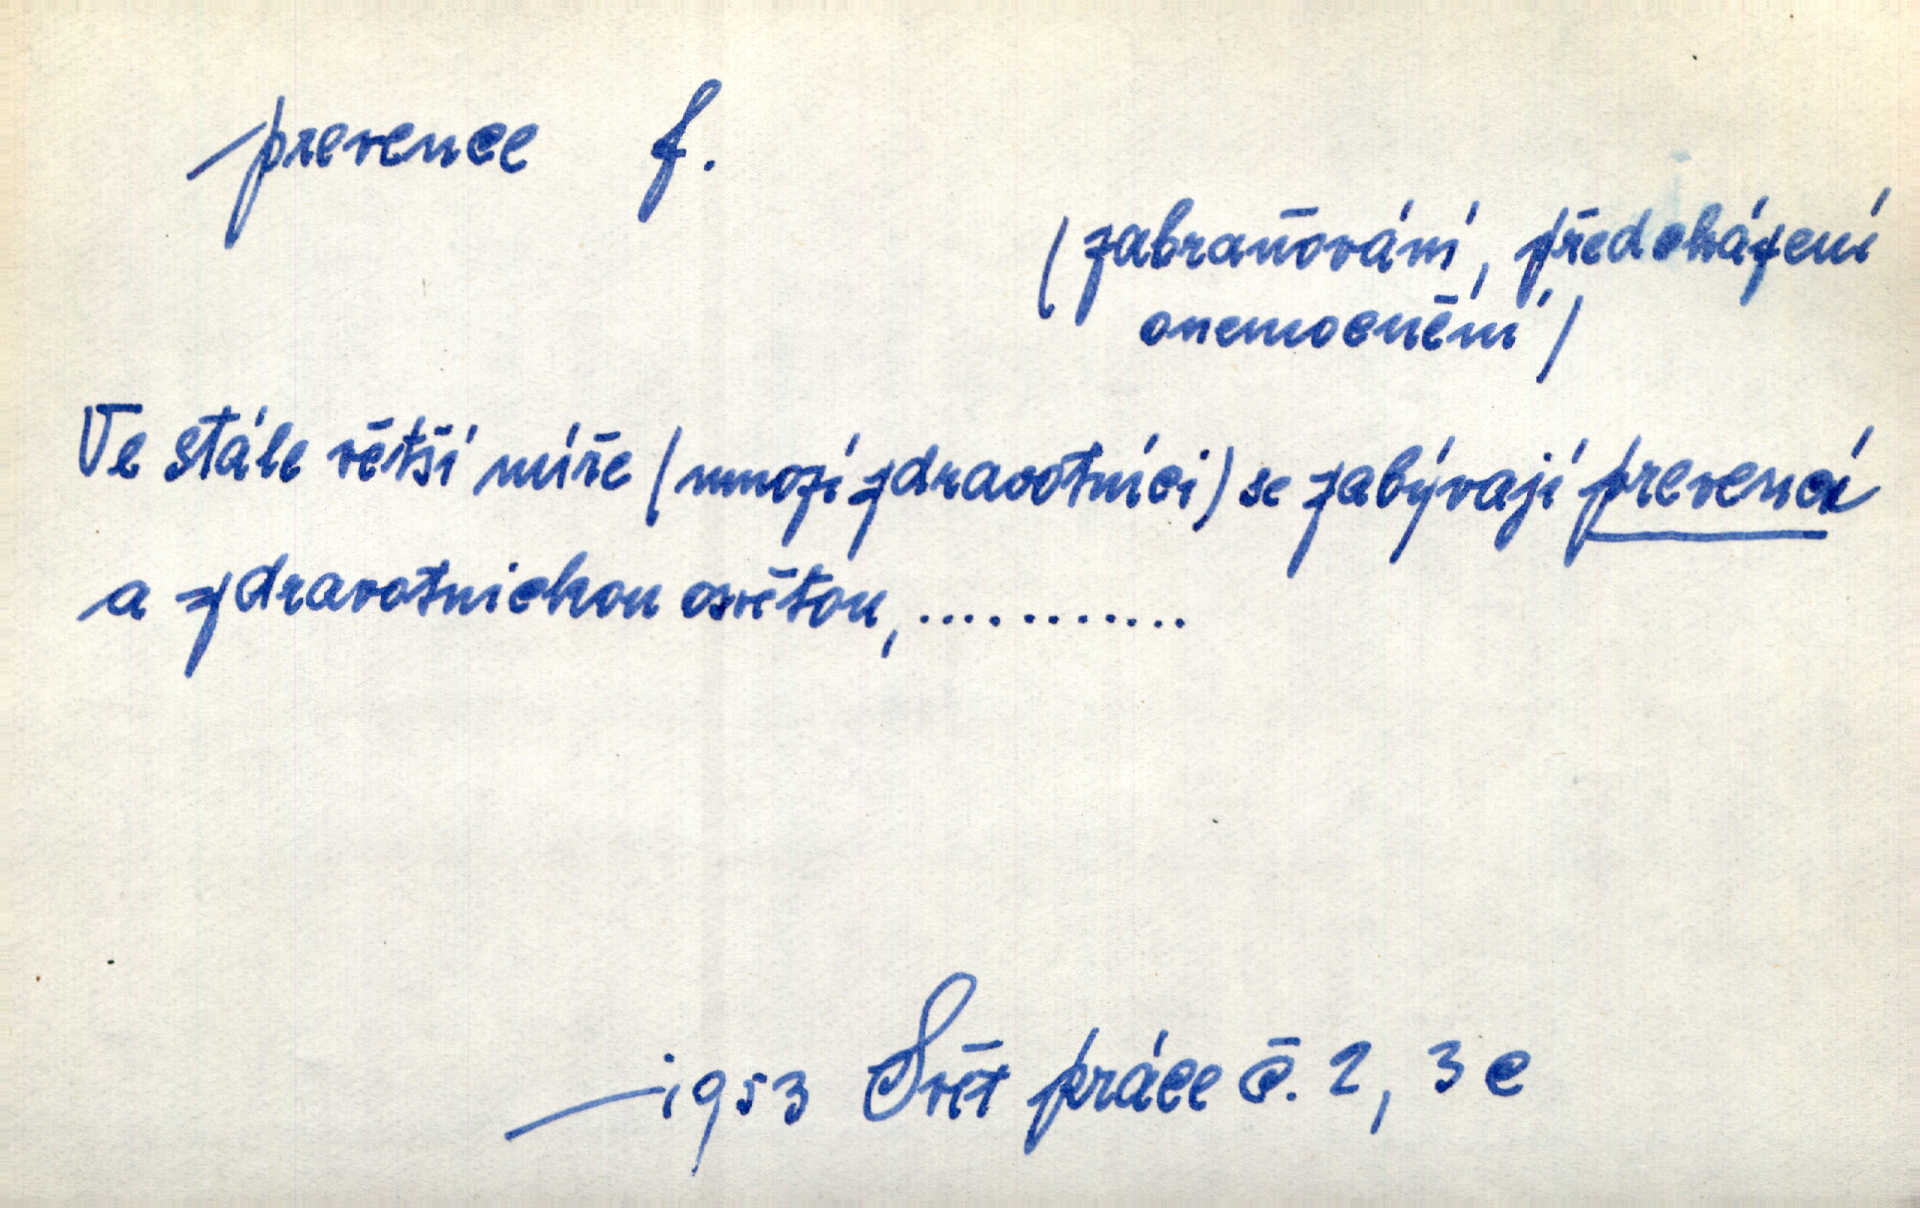 prevence f.
(zabraňování, předcházení
onemocnění)
Ve stále větší míře (mnozí zdravotníci) se zabývají prevencí
a zdravotnickou osvětou,............
1953 Svět práce č. 2, 3 c